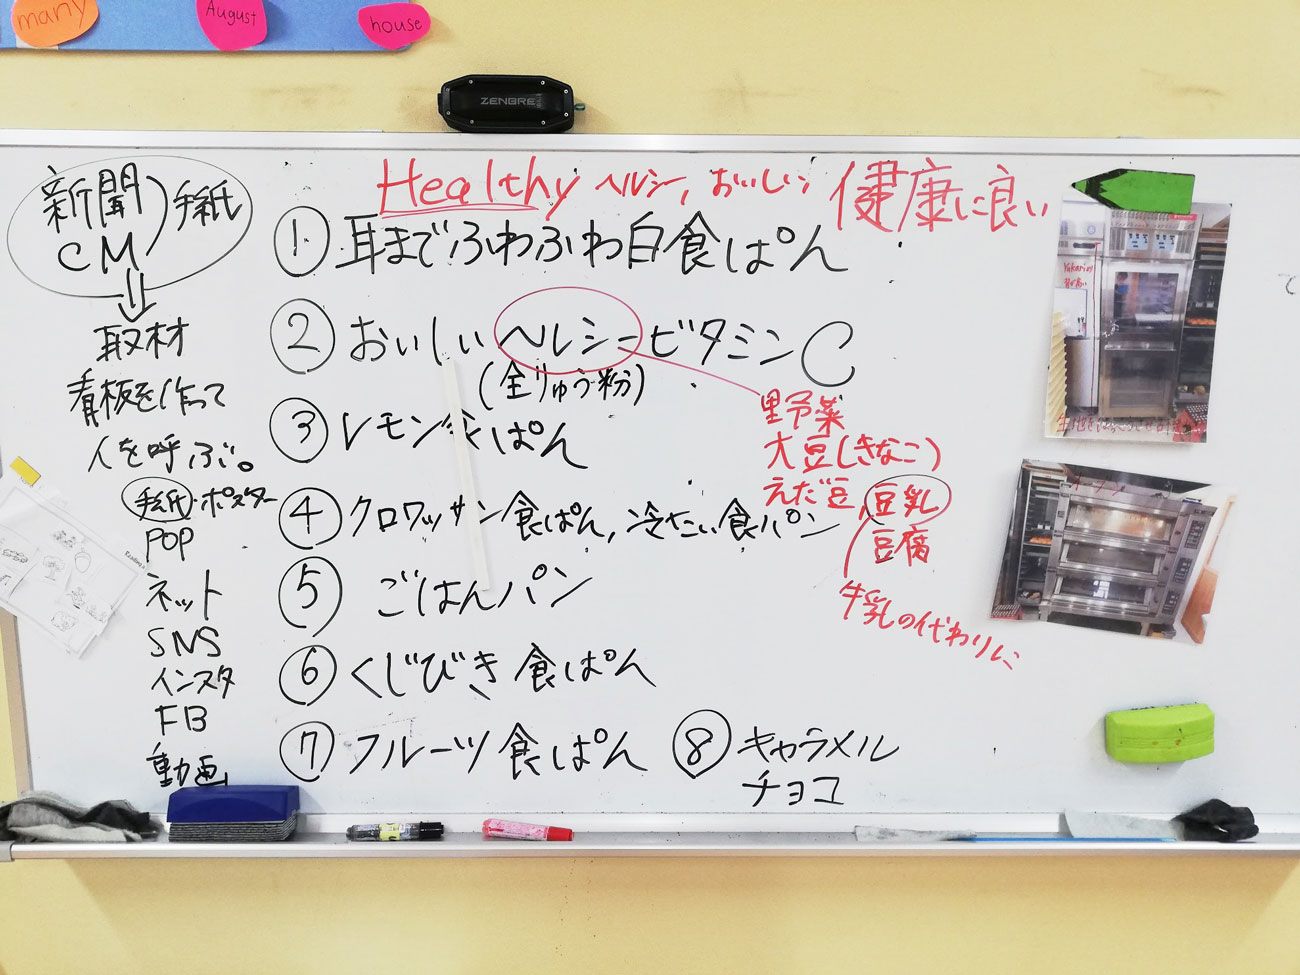 many
August
house
ZENBRE
新聞
CM
手紙
取材
看板を作って
人を呼ぶ。
手紙・ポスター
POP
ネット
SNS
インスタ
FB
動画
Healthy ヘルシー, おいしい 健康に良い
① 耳までふわふわ白食ぱん
② おいしいヘルシービタミンC
(全りゅう粉)
③ レモン食ぱん
④ クロワッサン食ぱん, 冷たい食パン
⑤ ごはんパン
⑥ くじびき食ぱん
⑦ フルーツ食ぱん
⑧ キャラメル
チョコ
野菜
大豆(きなこ)
えだ豆, 豆乳
豆腐
牛乳の代わりに
て